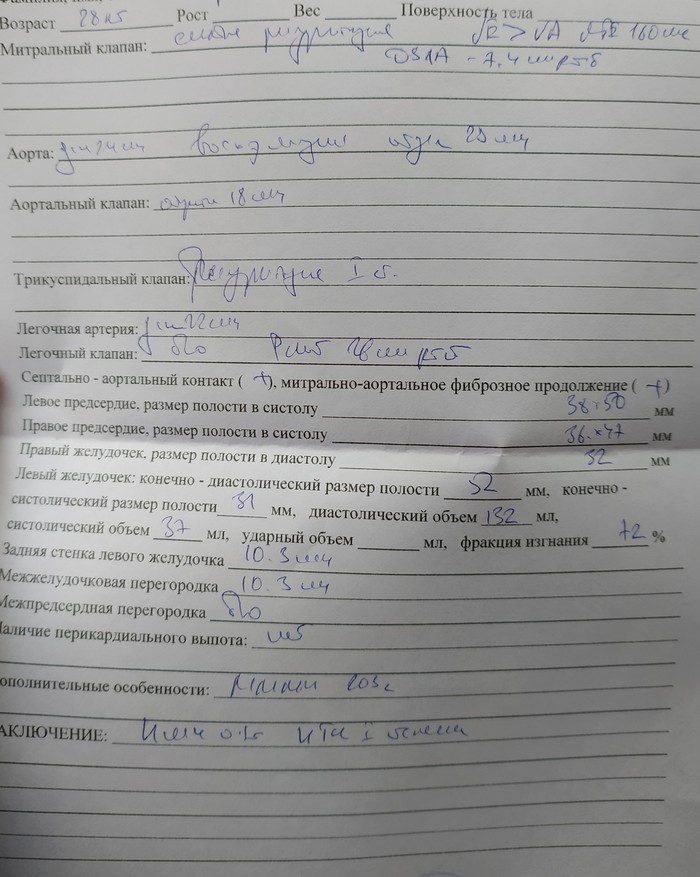 Возраст 28 Рост Вес Поверхность тела
Митральный клапан: регургитация VE > VA 160 мс
- 7,4 мм рт б
Аорта: 24 мм отдел 29 мм
Аортальный клапан: 18 мм
Трикуспидальный клапан: Регургитация I ст.
Легочная артерия: 22 мм
Легочный клапан: б/о 28 мм рт б
Септально - аортальный контакт ( + ), митрально-аортальное фиброзное продолжение ( + )
Левое предсердие, размер полости в систолу 38×50 мм
Правое предсердие, размер полости в систолу 36×47 мм
Правый желудочек, размер полости в диастолу 32 мм
Левый желудочек: конечно - диастолический размер полости 52 мм, конечно -
систолический размер полости 31 мм, диастолический объем 132 мл,
систолический объем 37 мл, ударный объем мл, фракция изгнания 72 %
Задняя стенка левого желудочка 10.3 мм
Межжелудочковая перегородка 10.3 мм
Межпредсердная перегородка б/о
Наличие перикардиального выпота: нет
ополнительные особенности: 203 г
АКЛЮЧЕНИЕ: I степени